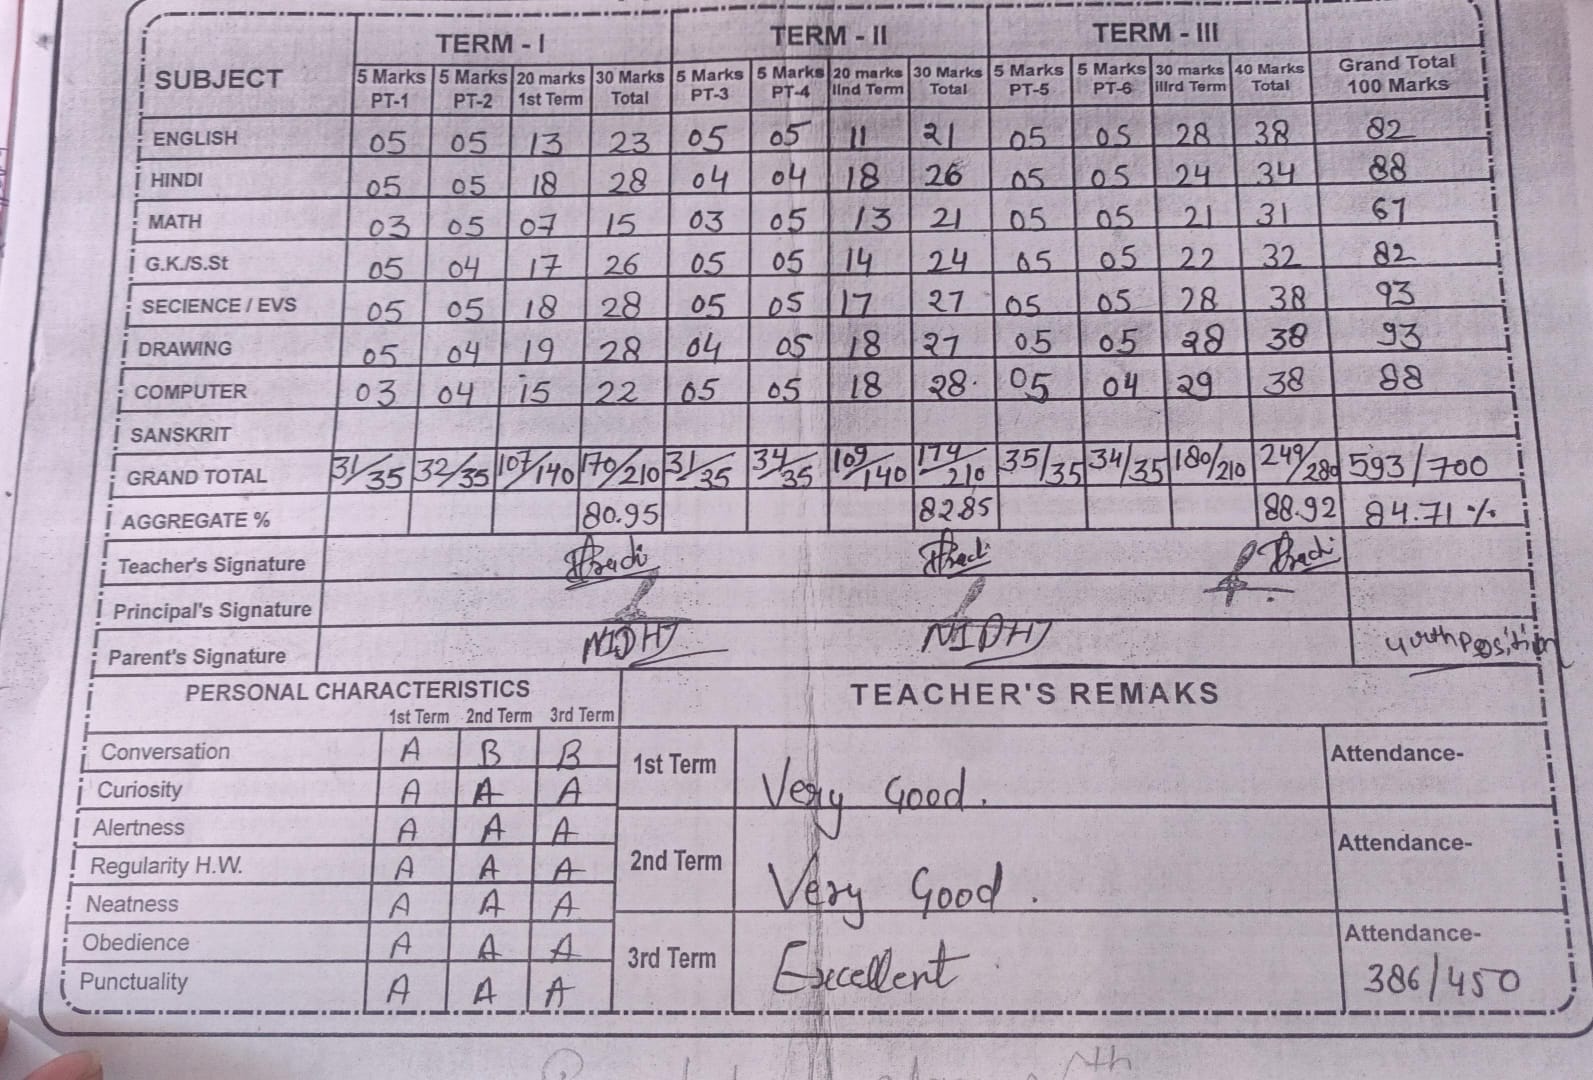 TERM - I TERM - II TERM - III
SUBJECT 5 Marks PT-1 5 Marks PT-2 20 marks 1st Term 30 Marks Total 5 Marks PT-3 5 Marks PT-4 20 marks IInd Term 30 Marks Total 5 Marks PT-5 5 Marks PT-6 30 marks illrd Term 40 Marks Total Grand Total 100 Marks
ENGLISH 05 05 13 23 05 05 11 21 05 05 28 38 82
HINDI 05 05 18 28 04 04 18 26 05 05 24 34 88
MATH 03 05 07 15 03 05 13 21 05 05 21 31 67
G.K./S.St 05 04 17 26 05 05 14 24 05 05 22 32 82
SECIENCE / EVS 05 05 18 28 05 05 17 27 05 05 28 38 93
DRAWING 05 04 19 28 04 05 18 27 05 05 28 38 93
COMPUTER 03 04 15 22 05 05 18 28. 05 04 29 38 88
SANSKRIT
GRAND TOTAL 31/35 32/35 107/140 170/210 31/35 34/35 109/140 174/210 35/35 34/35 180/210 249/280 593/700
AGGREGATE % 80.95 82.85 88.92 84.71 %
Teacher's Signature
Principal's Signature
Parent's Signature NIDHI NIDHI Position
PERSONAL CHARACTERISTICS TEACHER'S REMAKS
1st Term 2nd Term 3rd Term
Conversation A B B
Curiosity A A A
Alertness A A A
Regularity H.W. A A A
Neatness A A A
Obedience A A A
Punctuality A A A
1st Term Very Good. Attendance-
2nd Term Very Good. Attendance-
3rd Term Excellent Attendance-
386/450